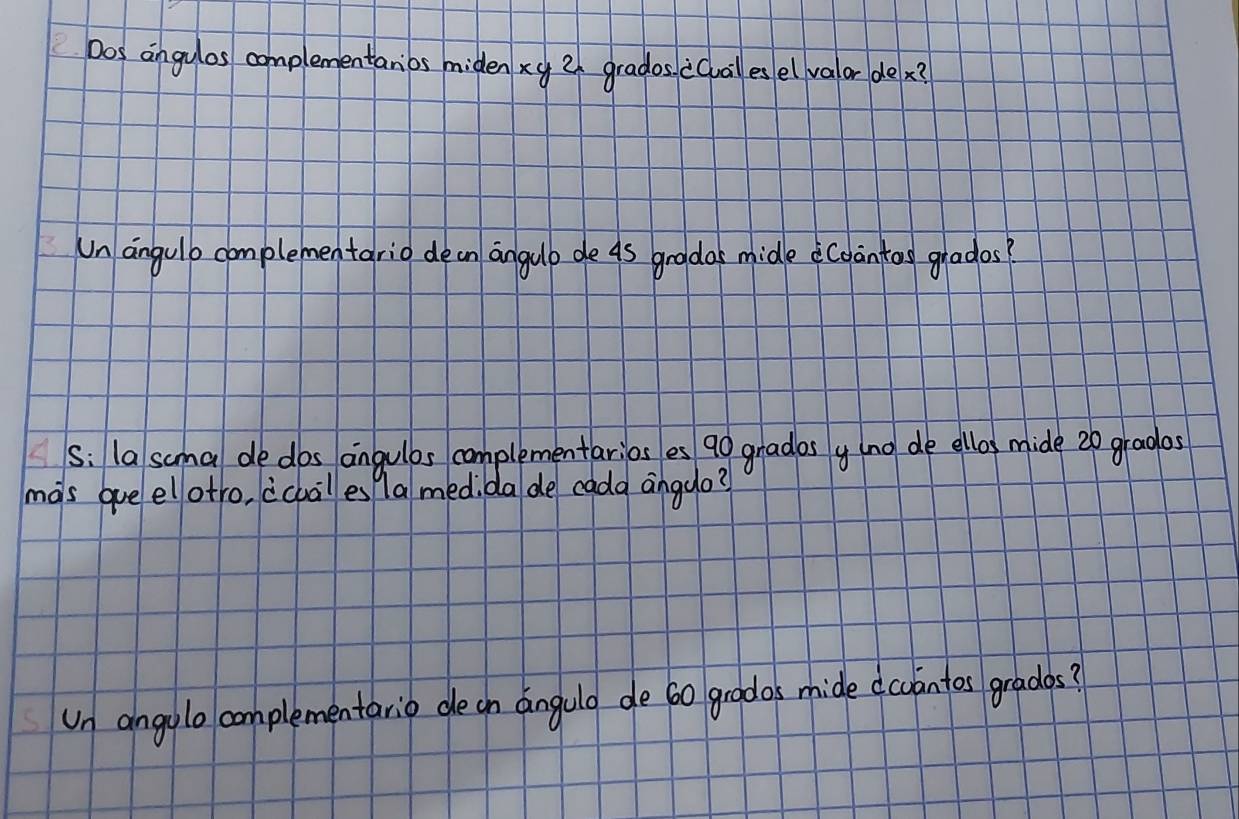 2. Dos ángulos complementarios miden x y 2x grados. ¿Cuál es el valor de x?
3 Un ángulo complementario de un ángulo de 45 grados mide ¿Cuántos grados?
4 Si la suma de dos ángulos complementarios es 90 grados y uno de ellos mide 20 grados
más que el otro, ¿cuál es la medida de cada ángulo?
5 Un angulo complementario de un ángulo de 60 grados mide ¿cuántos grados?